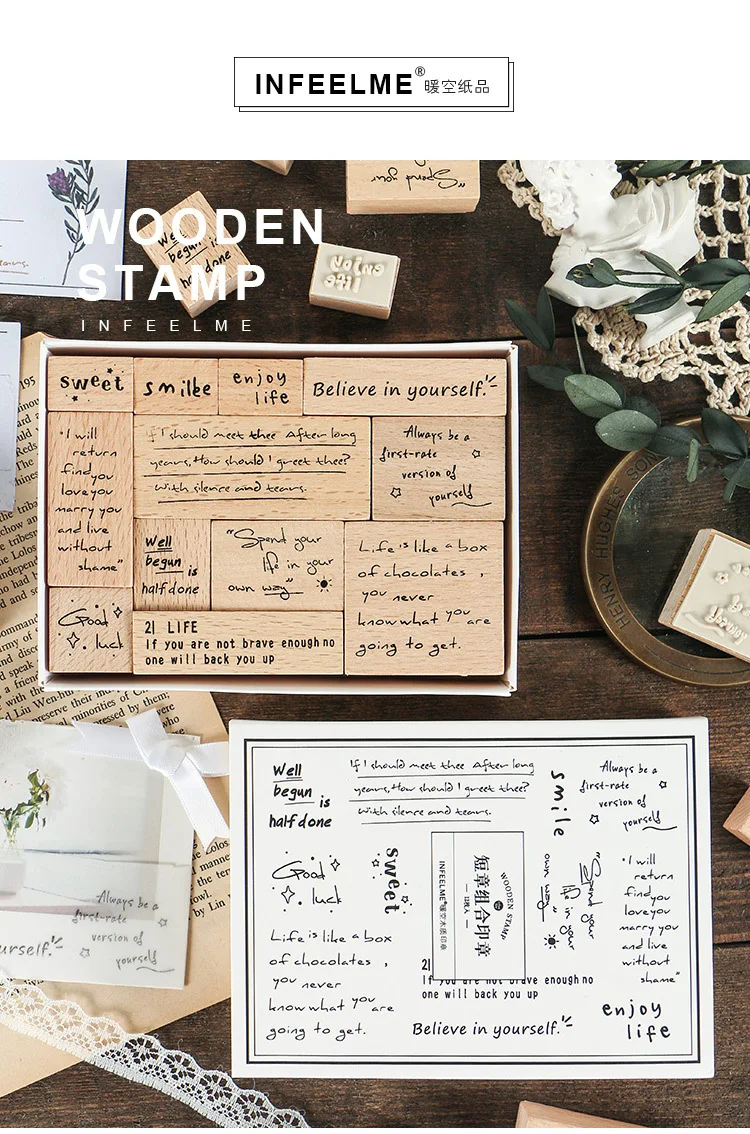 INFEELME® 暖空纸品
Spend your
WOODEN
STAMP
INFEELME
Well
begun is
half done
enjoy
life
sweet
smilke
enjoy
life
Believe in yourself.
"I will
return
find you
love you
marry you
and live
without
shame"
If I should meet thee After long
years, How should I greet thee?
With silence and tears.
Always be a
first-rate
version of
yourself
Well
begun is
half done
"Spend your
life in your
own way"
Life is like a box
of chocolates ,
you never
know what you are
going to get.
Good
luck
21 LIFE
If you are not brave enough no
one will back you up
HENRY HUGHES SON
Well
begun is
half done
If I should meet thee After long
years, How should I greet thee?
With silence and tears.
smile
Always be a
first-rate
version of
yourself
Good
luck
sweet
WOODEN STAMP
短章组合印章
INFEELME®暖空木质印章
"Spend your
life in your
own way"
"I will
return
find you
love you
marry you
and live
without
shame"
Life is like a box
of chocolates ,
you never
know what you are
going to get.
21
If you are not brave enough no
one will back you up
Believe in yourself.
enjoy
life
Always be a
first-rate
version of
yourself
urself.